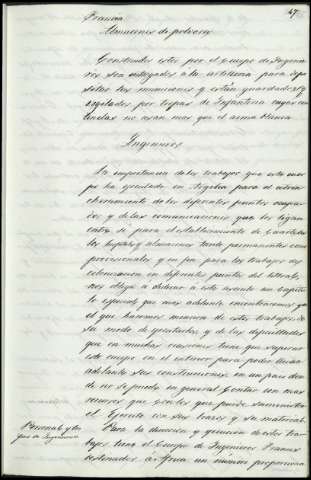 47
Francia
Almacenes de polvora
Construidos estos por el Cuerpo de Ingenie
ros son entregados a la artilleria para depo
sitar las municiones y estan guardados y
vigilados por tropas de Infanteria cuyos cen
tinelas no usan mas que el arma blanca
Ingenieros
La importancia de los trabajos que este cuer
po ha ejecutado en Argelia para el atrin
cheramiento de los diferentes puntos ocupa
dos y de las comunicaciones que los ligan
entre si para el establecimiento de Cuarteles
los hospitales y almacenes tanto permanentes como
provisionales y en fin para los trabajos de
colonizacion en diferentes puntos del litoral,
nos obliga a dedicar a este asunto un Capitu
lo especial que mas adelante encontraremos y en
el que haremos mencion de estos trabajos, de
su modo de ejecutarlos y de las dificultades
que en muchas ocasiones tiene que superar
este cuerpo en el interior para poder llevar
adelante sus construcciones en un pais don
de no se puede en general contar con mas
recursos que con los que puede suministrar
el Ejercito con sus brazos y su material.
Personal y tro
pas de Ingenieros
Para la direccion y ejecucion de estos tra
bajos tiene el Cuerpo de Ingenieros Frances
destinados a Africa un numero proporciona